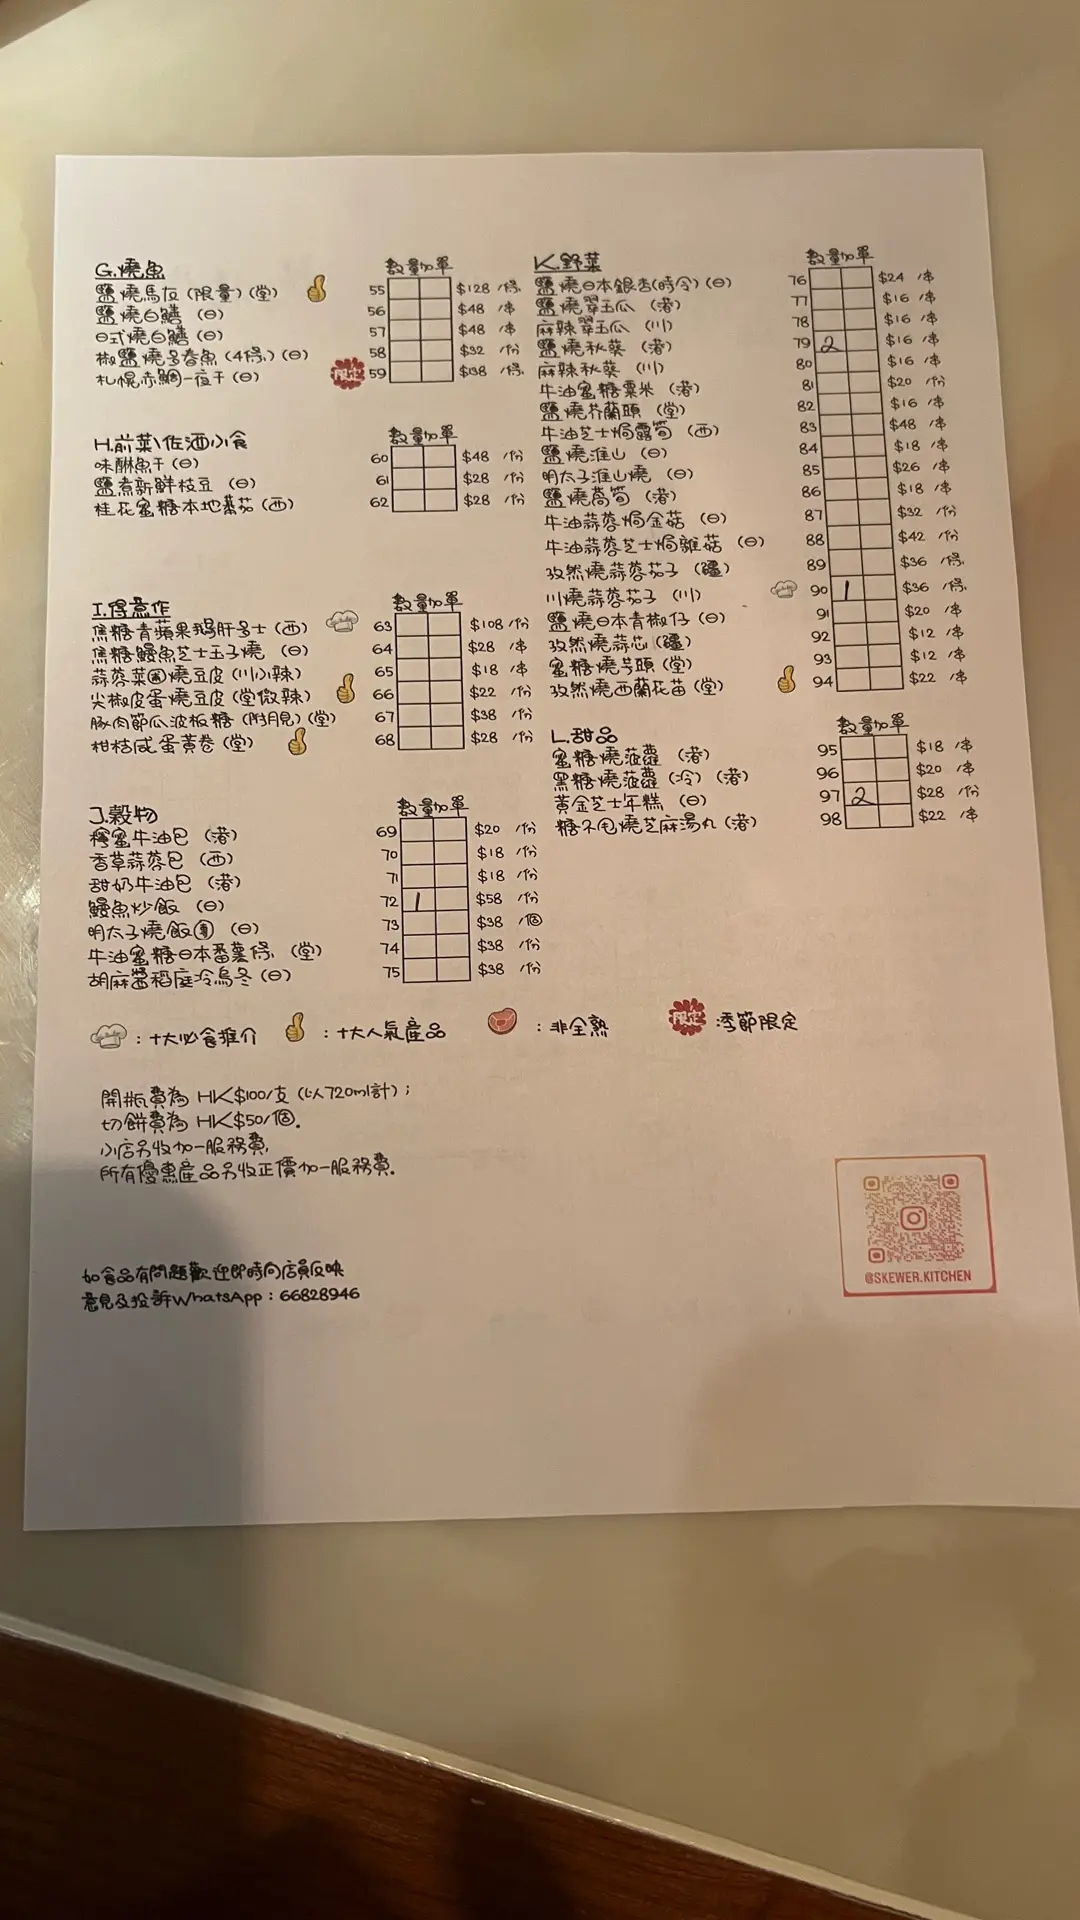 G.燒魚 數量加單
鹽燒馬友 (限量) (堂) 55 $128 /條
鹽燒白鱔 (日) 56 $48 /串
日式燒白鱔 (日) 57 $48 /串
椒鹽燒多春魚 (4條) (日) 58 $32 /份
札幌赤鯛一夜干 (日) 限定 59 $138 /條
H.前菜\佐酒小食 數量加單
味醂魚干 (日) 60 $48 /份
鹽煮新鮮枝豆 (日) 61 $28 /份
桂花蜜糖本地蕃茄 (西) 62 $28 /份
I.得意作 數量加單
焦糖青蘋果鵝肝多士 (西) 63 $108 /份
焦糖鰻魚芝士玉子燒 (日) 64 $28 /串
蒜蓉菜圃燒豆皮 (川小辣) 65 $18 /串
尖椒皮蛋燒豆皮 (堂微辣) 66 $22 /份
豚肉節瓜波板糖 (附月見) (堂) 67 $38 /份
柑桔咸蛋黃卷 (堂) 68 $28 /份
J.穀物 數量加單
檸蜜牛油包 (港) 69 $20 /份
香草蒜蓉包 (西) 70 $18 /份
甜奶牛油包 (港) 71 $18 /份
鰻魚炒飯 (日) 72 1 $58 /份
明太子燒飯團 (日) 73 $38 /個
牛油蜜糖日本番薯條 (堂) 74 $38 /份
胡麻醬稻庭冷烏冬 (日) 75 $38 /份
K.野菜 數量加單
鹽燒日本銀杏(時令) (日) 76 $24 /串
鹽燒翠玉瓜 (港) 77 $16 /串
麻辣翠玉瓜 (川) 78 $16 /串
鹽燒秋葵 (港) 79 2 $16 /串
麻辣秋葵 (川) 80 $16 /串
牛油蜜糖粟米 (港) 81 $20 /份
鹽燒芥蘭頭 (堂) 82 $16 /串
牛油芝士焗露筍 (西) 83 $48 /串
鹽燒淮山 (日) 84 $18 /串
明太子淮山燒 (日) 85 $26 /串
鹽燒萵筍 (港) 86 $18 /串
牛油蒜蓉焗金菇 (日) 87 $32 /份
牛油蒜蓉芝士焗雜菇 (日) 88 $42 /份
孜然燒蒜蓉茄子 (疆) 89 $36 /條
川燒蒜蓉茄子 (川) 90 1 $36 /條
鹽燒日本青椒仔 (日) 91 $20 /串
孜然燒蒜芯 (疆) 92 $12 /串
蜜糖燒芋頭 (堂) 93 $12 /串
孜然燒西蘭花苗 (堂) 94 $22 /串
L.甜品 數量加單
蜜糖燒菠蘿 (港) 95 $18 /串
黑糖燒菠蘿 (冷) (港) 96 $20 /串
黃金芝士年糕 (日) 97 2 $28 /份
糖不甩燒芝麻湯丸 (港) 98 $22 /串
:十大必食推介 :十大人氣產品 :非全熟 限定 :季節限定
開瓶費為 HK$100/支 (以720ml計) ;
切餅費為 HK$50/個.
小店另收加一服務費,
所有優惠產品另收正價加一服務費.
如食品有問題歡迎即時向店員反映
意見及投訴WhatsApp : 66828946
@SKEWER.KITCHEN